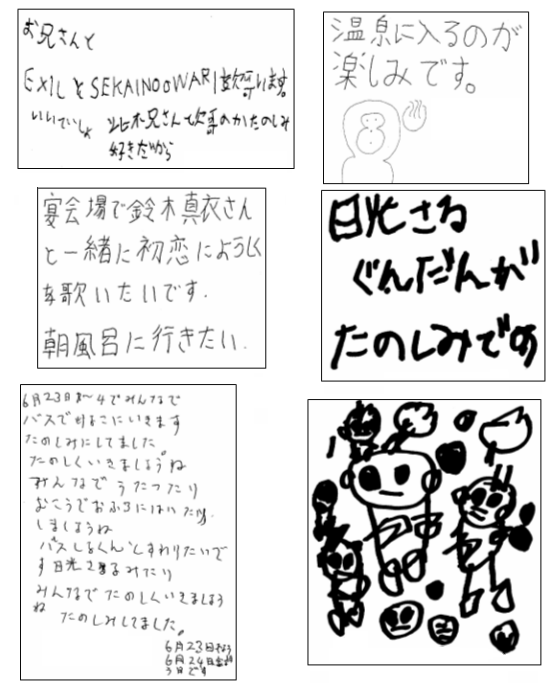 お兄さんと
EXILとSEKAINOOWARI歌ます。
兄さんと歌のがたのしみ
好きだから
温泉に入るのが
楽しみです。
宴会場で鈴木真衣さん
と一緒に初恋にようしく
を歌いたいです.
朝風呂に行きたい.
日光さる
ぐんだんが
たのしみです
6月23日 4でみんなで
バスで にいきます
たのしみにしてました
たのしくいきましょうね
みんなでうたったり
むこうでおふろにはいたり.
しましょうね
バス くん すわりたいで
す日光さるみたり
みんなでたのしくいきましょう
ね たのしみしてました。
6月23日
6月24日
う日です